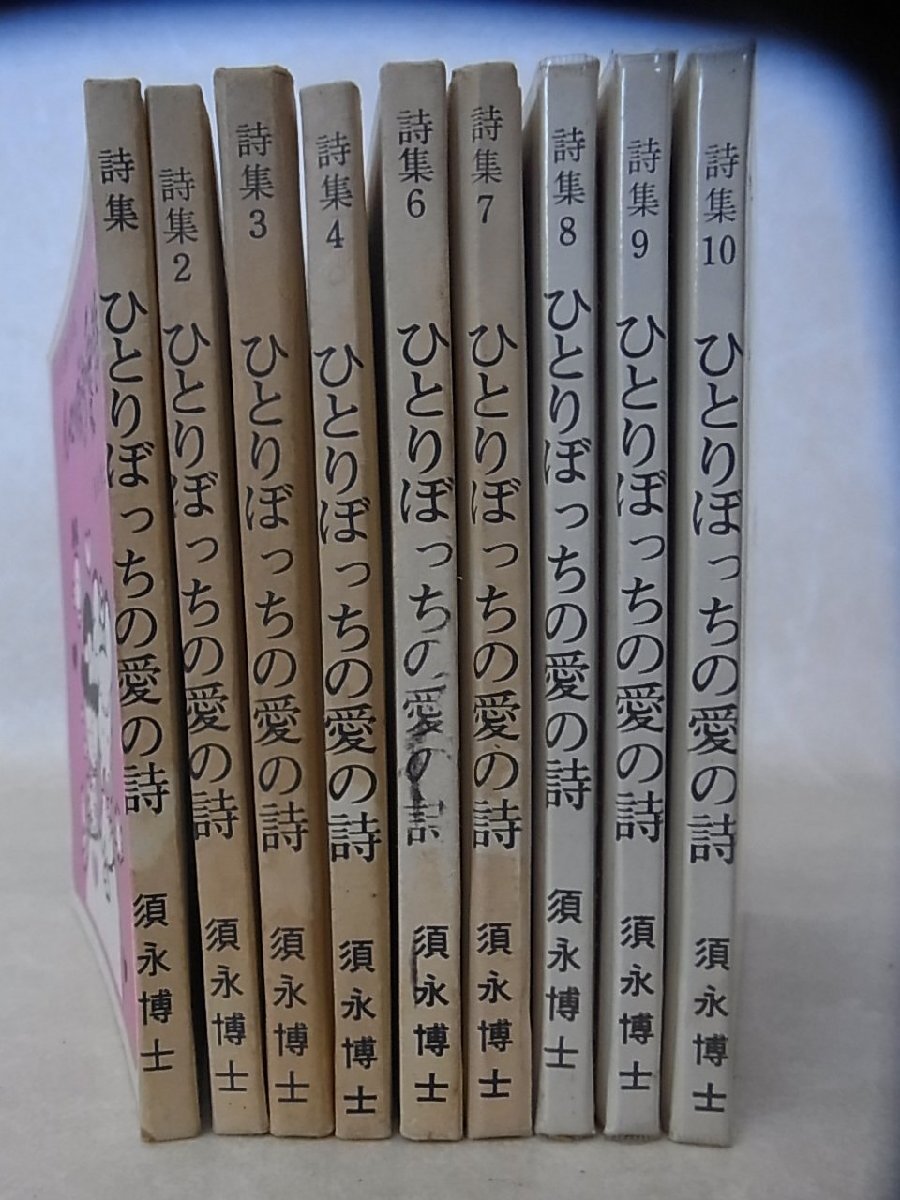 詩集 ひとりぼっちの愛の詩 須永博士
詩集2 ひとりぼっちの愛の詩 須永博士
詩集3 ひとりぼっちの愛の詩 須永博士
詩集4 ひとりぼっちの愛の詩 須永博士
詩集6 ひとりぼっちの愛の詩 須永博士
詩集7 ひとりぼっちの愛の詩 須永博士
詩集8 ひとりぼっちの愛の詩 須永博士
詩集9 ひとりぼっちの愛の詩 須永博士
詩集10 ひとりぼっちの愛の詩 須永博士